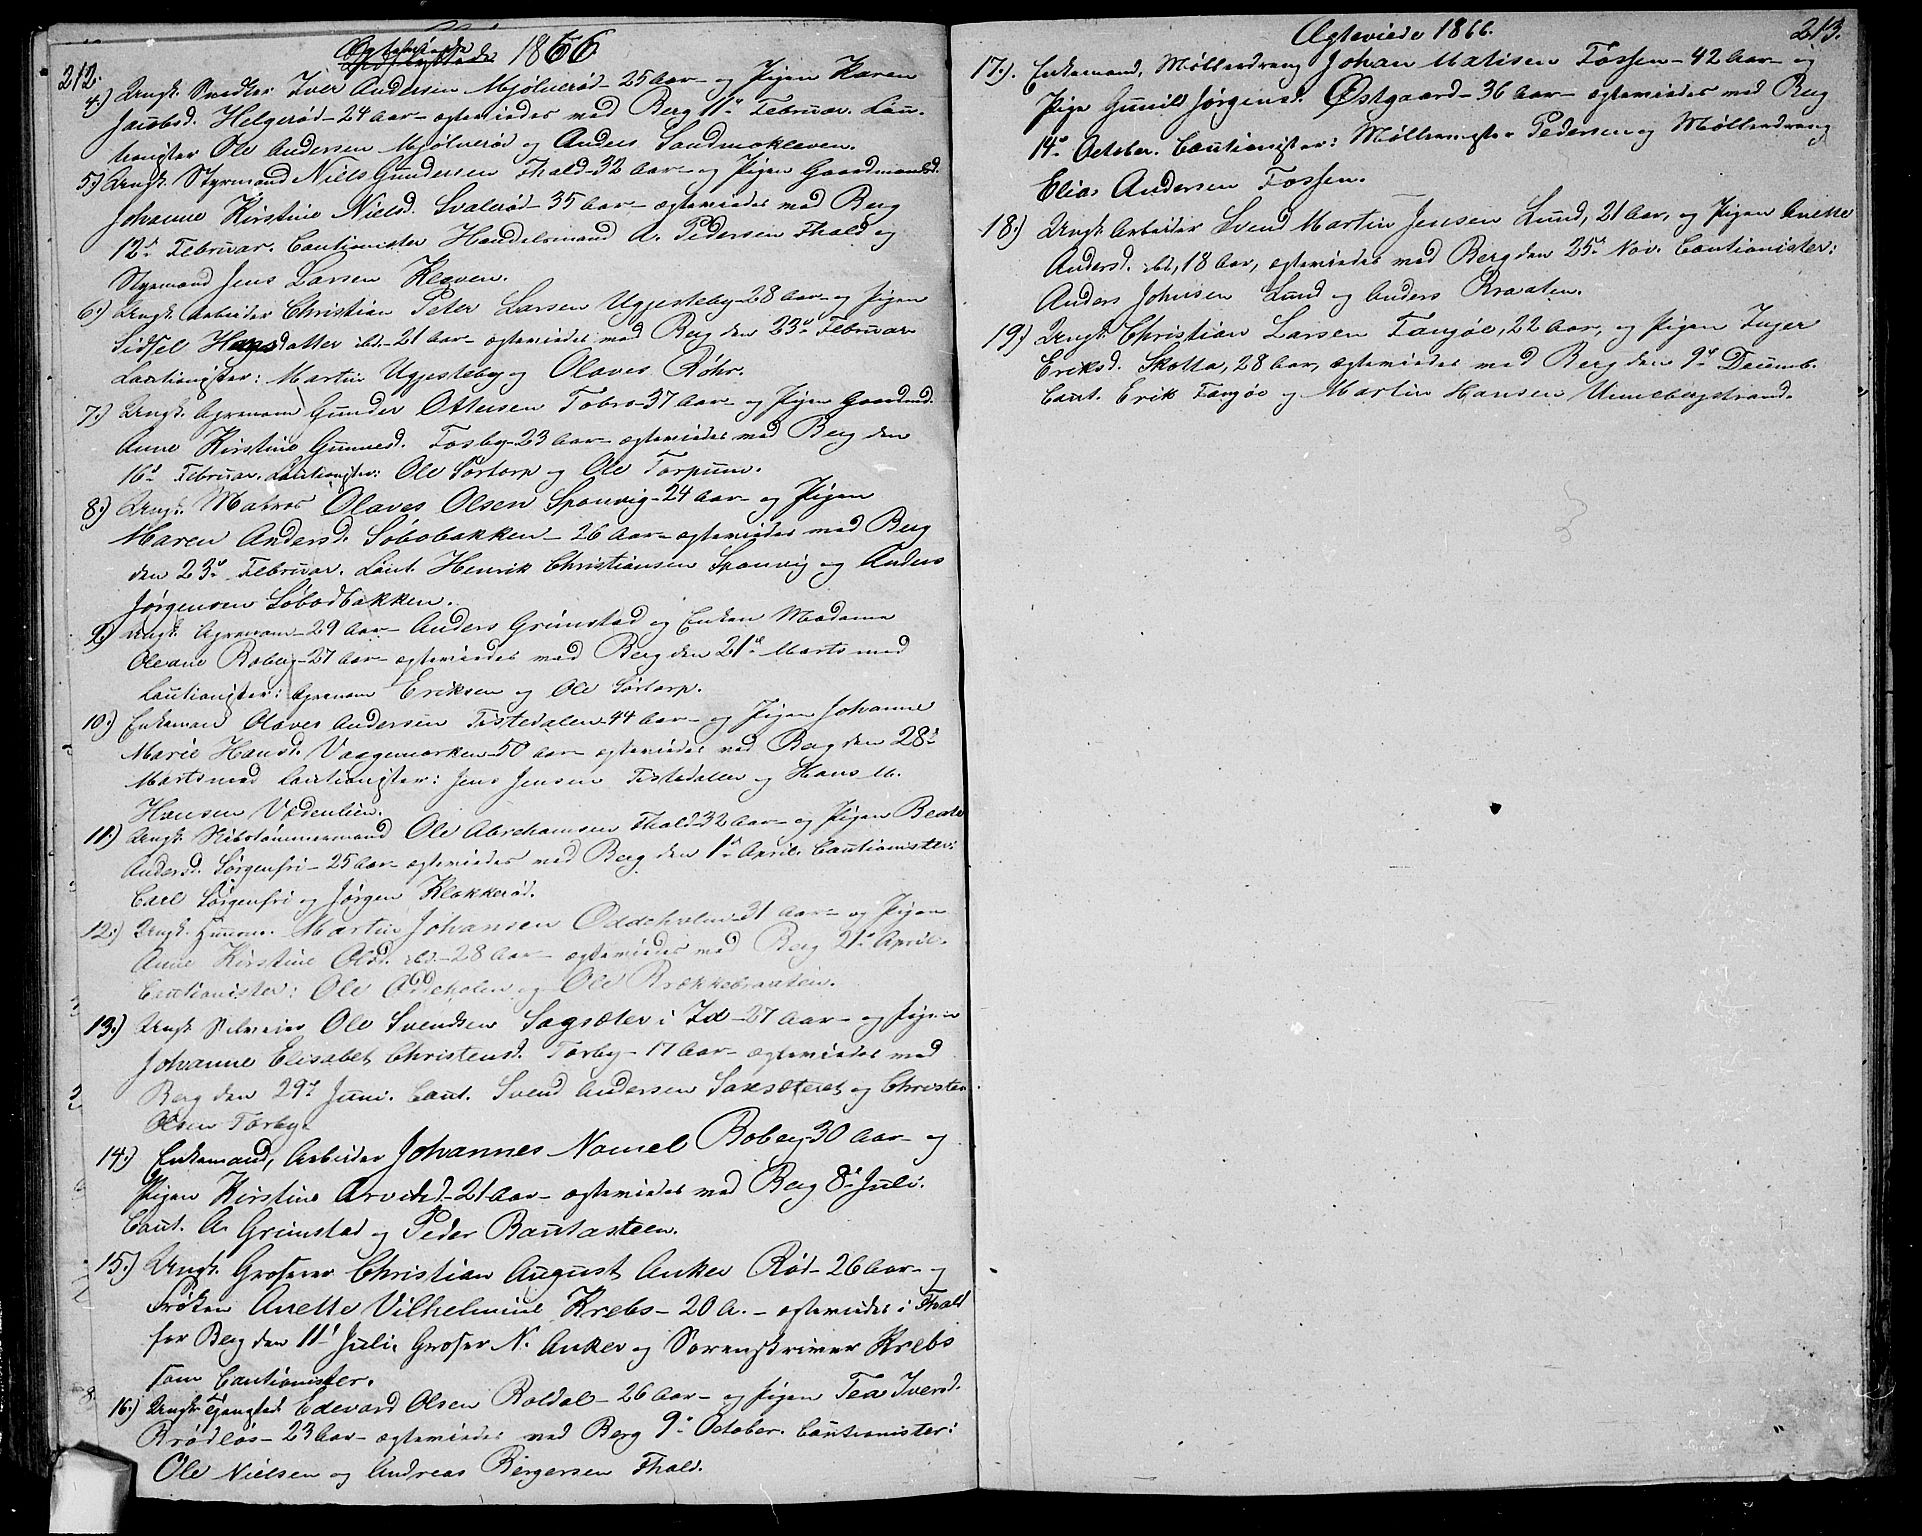 212.
Ægteviede 1866
4.) Ungk. Snedker Iver Andersen Mjølnerød - 25 Aar - og Pigen Karen
Jacobsd. Helgerød - 24 Aar - ægteviedes ved Berg 11te Februar. Cau-
tionister Ole Andersen Mjølnerød og Anders Sandmokleven.
5.) Ungk. Styrmand Niels Gundersen Fhald - 32 Aar - og Pigen Gaardmandsd.
Johanne Kirstine Nielsd. Svalerød - 35 Aar, ægteviedes ved Berg
12te Februar. Cautionister Handelsmand A. Pedersen Fhald og
Styrmand Jens Larsen Kleven.
6.) Ungk. Arbeider Christian Peter Larsen Ugjesteby - 28 Aar - og Pigen
Sidsel Hansdatter ibd. - 21 Aar - ægteviedes ved Berg den 23de Februar
Cautionister: Martin Ugjesteby og Olaves Røhr.
7.) Ungk. Agronom Gunder Ottersen Tobro - 37 Aar - og Pigen Gaardmd.
Anne Kirstine Gunnesd. Fosby - 23 Aar - ægteviedes ved Berg den
16de Februar. Cautionister: Ole Sørtorp og Ole Torpum.
8.) Ungk. Matros Olaves Olsen Sponvig - 24 Aar - og Pigen
Maren Andersd. Søbobakken - 26 Aar - ægteviedes ved Berg
den 23de Februar. Caut. Henrik Christiansen Sponvig og Anders
Jørgensen Søbodbakken.
9.) Ungk. Agronom - 29 Aar - Anders Grimstad og Enken Madame
Oleane Roberg - 27 Aar - ægteviedes ved Berg den 21de Marts med
Cautionister: Agronom Eriksen og Ole Sørtorp.
10.) Enkemand Olaves Andersen Tistedalen - 44 Aar - og Pigen Johanne
Marie Hansd. Vaggemarken - 50 Aar - ægteviedes ved Berg den 28de
Marts med Cautionister: Jens Jensen Tistedalen og Hans M.
Hansen Vedenlien.
11.) Ungk. Skibstømmermand Ole Abrahamsen Fhald - 32 Aar - og Pigen Beate
Andersd. Sørgenfri - 25 Aar - ægteviedes ved Berg den 1ste April. Cautionister:
Carl Sørgenfri og Jørgen Klokkerød.
12.) Ungk. Martin Johansen Oddeholen - 31 Aar - og Pigen
Anne Kirstine Olsd. ibd. - 28 Aar - ægteviedes ved Berg 21de April.
Cautionister: Ole Oddeholen og Ole Brækkebraaten.
13.) Ungk. Selveier Ole Svendsen Sagsæter i Id - 27 Aar - og Pigen
Johanne Elisabet Christensd. Torby - 17 Aar - ægteviedes ved
Berg den 29de Juni. Caut. Svend Andersen Saxsæteret og Christen
Olsen Torby.
14.) Enkemand, Arbeider Johannes Roberg 30 Aar - og
Pigen Kirstine Arvedsd. - 21 Aar - ægteviedes ved Berg 8de Juli.
Caut. A. Grimstad og Peder Bautasteen.
15.) Ungk. Groserer Christian August Anker Rød - 26 Aar - og
Frøken Anette Vilhelmine Krebs - 20 A. - ægteviedes i Fhald
for Berg den 11te Juli. Groser N. Anker og Sorenskriver Krebs
som Cautionister.
16.) Ungk. Edevard Olsen Roldal - 26 Aar - og Pigen Tea Iversd.
Brødløs - 23 Aar - ægteviedes ved Berg 9de October. Cautionister:
Ole Nielsen og Andreas Børgersen Fhald.
Ægteviede 1866.
213.
17.). Enkemand, Møllerdreng Johan Matisen Fossen - 42 Aar - og
Pige Gunild Jørgensd. Østgaard - 36 Aar - ægteviedes ved Berg
14de October. Cautionister: Møllermester Pedersen og Møllerdreng
Elias Andersen Fossen.
18.) Ungk. Arbeider Svend Martin Jensen Lund, 21 Aar, og Pigen Anette
Andersd. ibd, 18 Aar, ægteviedes ved Berg den 25de Nov. Cautionister:
Anders Johnsen Lund og Anders Braaten.
19.) Ungk. Christian Larsen Tangøe, 22 Aar, og Pigen Inger
Eriksd. Skotta, 28 Aar, ægteviedes ved Berg den 9de Decemb.
Caut. Erik Tangøe og Martin Hansen Unnebergstrand.